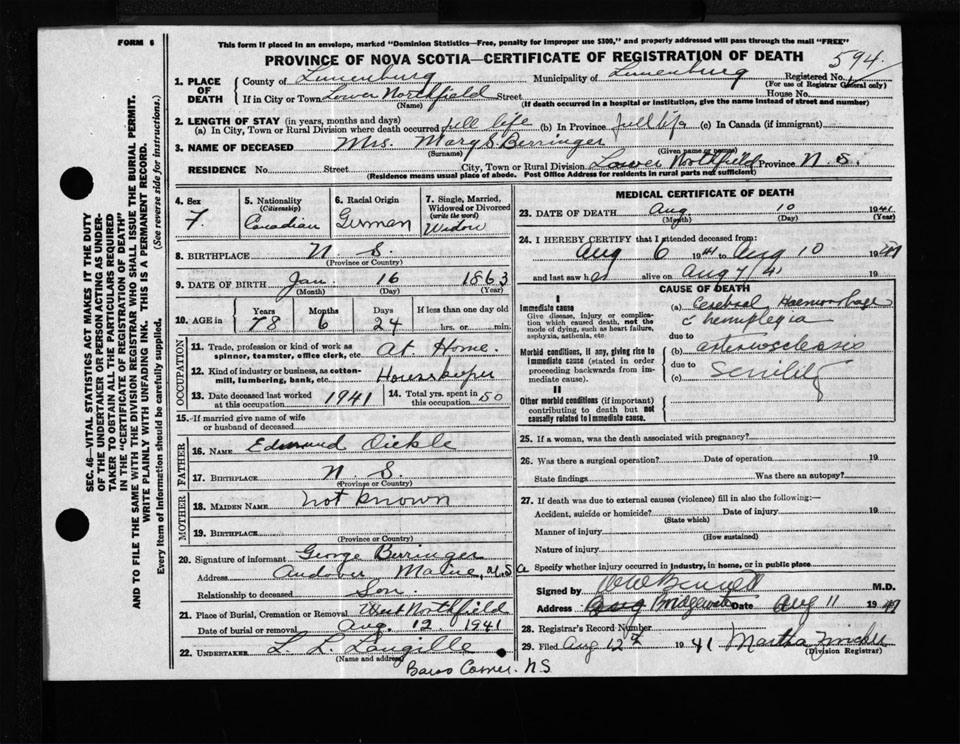 FORM 6
This form if placed in an envelope, marked "Dominion Statistics—Free, penalty for improper use $300," and properly addressed will pass through the mail "FREE"
PROVINCE OF NOVA SCOTIA—CERTIFICATE OF REGISTRATION OF DEATH
594
1. PLACE OF DEATH
County of Lunenburg Municipality of Lunenburg Registered No.
(For use of Registrar General only)
If in City or Town Lower Northfield Street House No.
(Name) (If death occurred in a hospital or institution, give the name instead of street and number)
2. LENGTH OF STAY (in years, months and days)
(a) In City, Town or Rural Division where death occurred full life (b) In Province full life (c) In Canada (if immigrant)
3. NAME OF DECEASED Mrs. Mary S. Berringer
(Surname) (Given name or names)
RESIDENCE No. Street City, Town or Rural Division Lower Northfield Province N.S.
(Residence means usual place of abode. Post Office Address for residents in rural parts not sufficient)
4. Sex
F.
5. Nationality
(Citizenship)
Canadian
6. Racial Origin
German
7. Single, Married, Widowed or Divorced
(write the word)
Widow
8. BIRTHPLACE N. S.
(Province or Country)
9. DATE OF BIRTH Jan 16 1863
(Month) (Day) (Year)
10. AGE in
Years Months Days If less than one day old
78 6 24 hrs. or min.
OCCUPATION
11. Trade, profession or kind of work as spinner, teamster, office clerk, etc. at Home.
12. Kind of industry or business, as cotton-mill, lumbering, bank, etc. Housekeeper
13. Date deceased last worked at this occupation 1941
14. Total yrs. spent in this occupation 50
15. If married give name of wife or husband of deceased
FATHER
16. NAME Edmund Vickle
17. BIRTHPLACE N. S.
(Province or Country)
MOTHER
18. MAIDEN NAME not known
19. BIRTHPLACE
(Province or Country)
20. Signature of informant George Berringer
Address Andover Maine, U.S.a
Relationship to deceased Son.
21. Place of Burial, Cremation or Removal West Northfield
Date of burial or removal Aug. 12. 1941
22. UNDERTAKER L. L. Langille
(Name and address)
Barss Corner. N.S
MEDICAL CERTIFICATE OF DEATH
23. DATE OF DEATH Aug 10 1941
(Month) (Day) (Year)
24. I HEREBY CERTIFY that I attended deceased from:
Aug 6 1941 to Aug 10 1941
and last saw h alive on Aug 7/41 19
CAUSE OF DEATH
I
Immediate cause
Give disease, injury or complication which caused death, not the mode of dying, such as heart failure, asphyxia, asthenia, etc
(a) Cerebral Haemorrhage
c hemiplegia
due to
Morbid conditions, if any, giving rise to immediate cause (stated in order proceeding backwards from immediate cause).
(b) arteriosclerosis
due to
(c) Senility
II
Other morbid conditions (if important) contributing to death but not causally related to immediate cause.
25. If a woman, was the death associated with pregnancy?
26. Was there a surgical operation? Date of operation 19
State findings Was there an autopsy?
27. If death was due to external causes (violence) fill in also the following:—
Accident, suicide or homicide? Date of injury 19
(State which)
Manner of injury
(How sustained)
Nature of injury
Specify whether injury occurred in industry, in home, or in public place
Signed by Bennett M.D.
Address Bridgewater Date Aug 11 1941
28. Registrar's Record Number
29. Filed Aug 12th 1941 Martha
(Division Registrar)
SEC. 46—VITAL STATISTICS ACT MAKES IT THE DUTY
OF THE UNDERTAKER OR PERSON ACTING AS UNDER-
TAKER TO OBTAIN ALL THE PARTICULARS REQUIRED
IN THE "CERTIFICATE OF REGISTRATION OF DEATH"
AND TO FILE THE SAME WITH THE DIVISION REGISTRAR WHO SHALL ISSUE THE BURIAL PERMIT.
WRITE PLAINLY WITH UNFADING INK. THIS IS A PERMANENT RECORD.
Every item of Information should be carefully supplied. (See reverse side for instructions.)